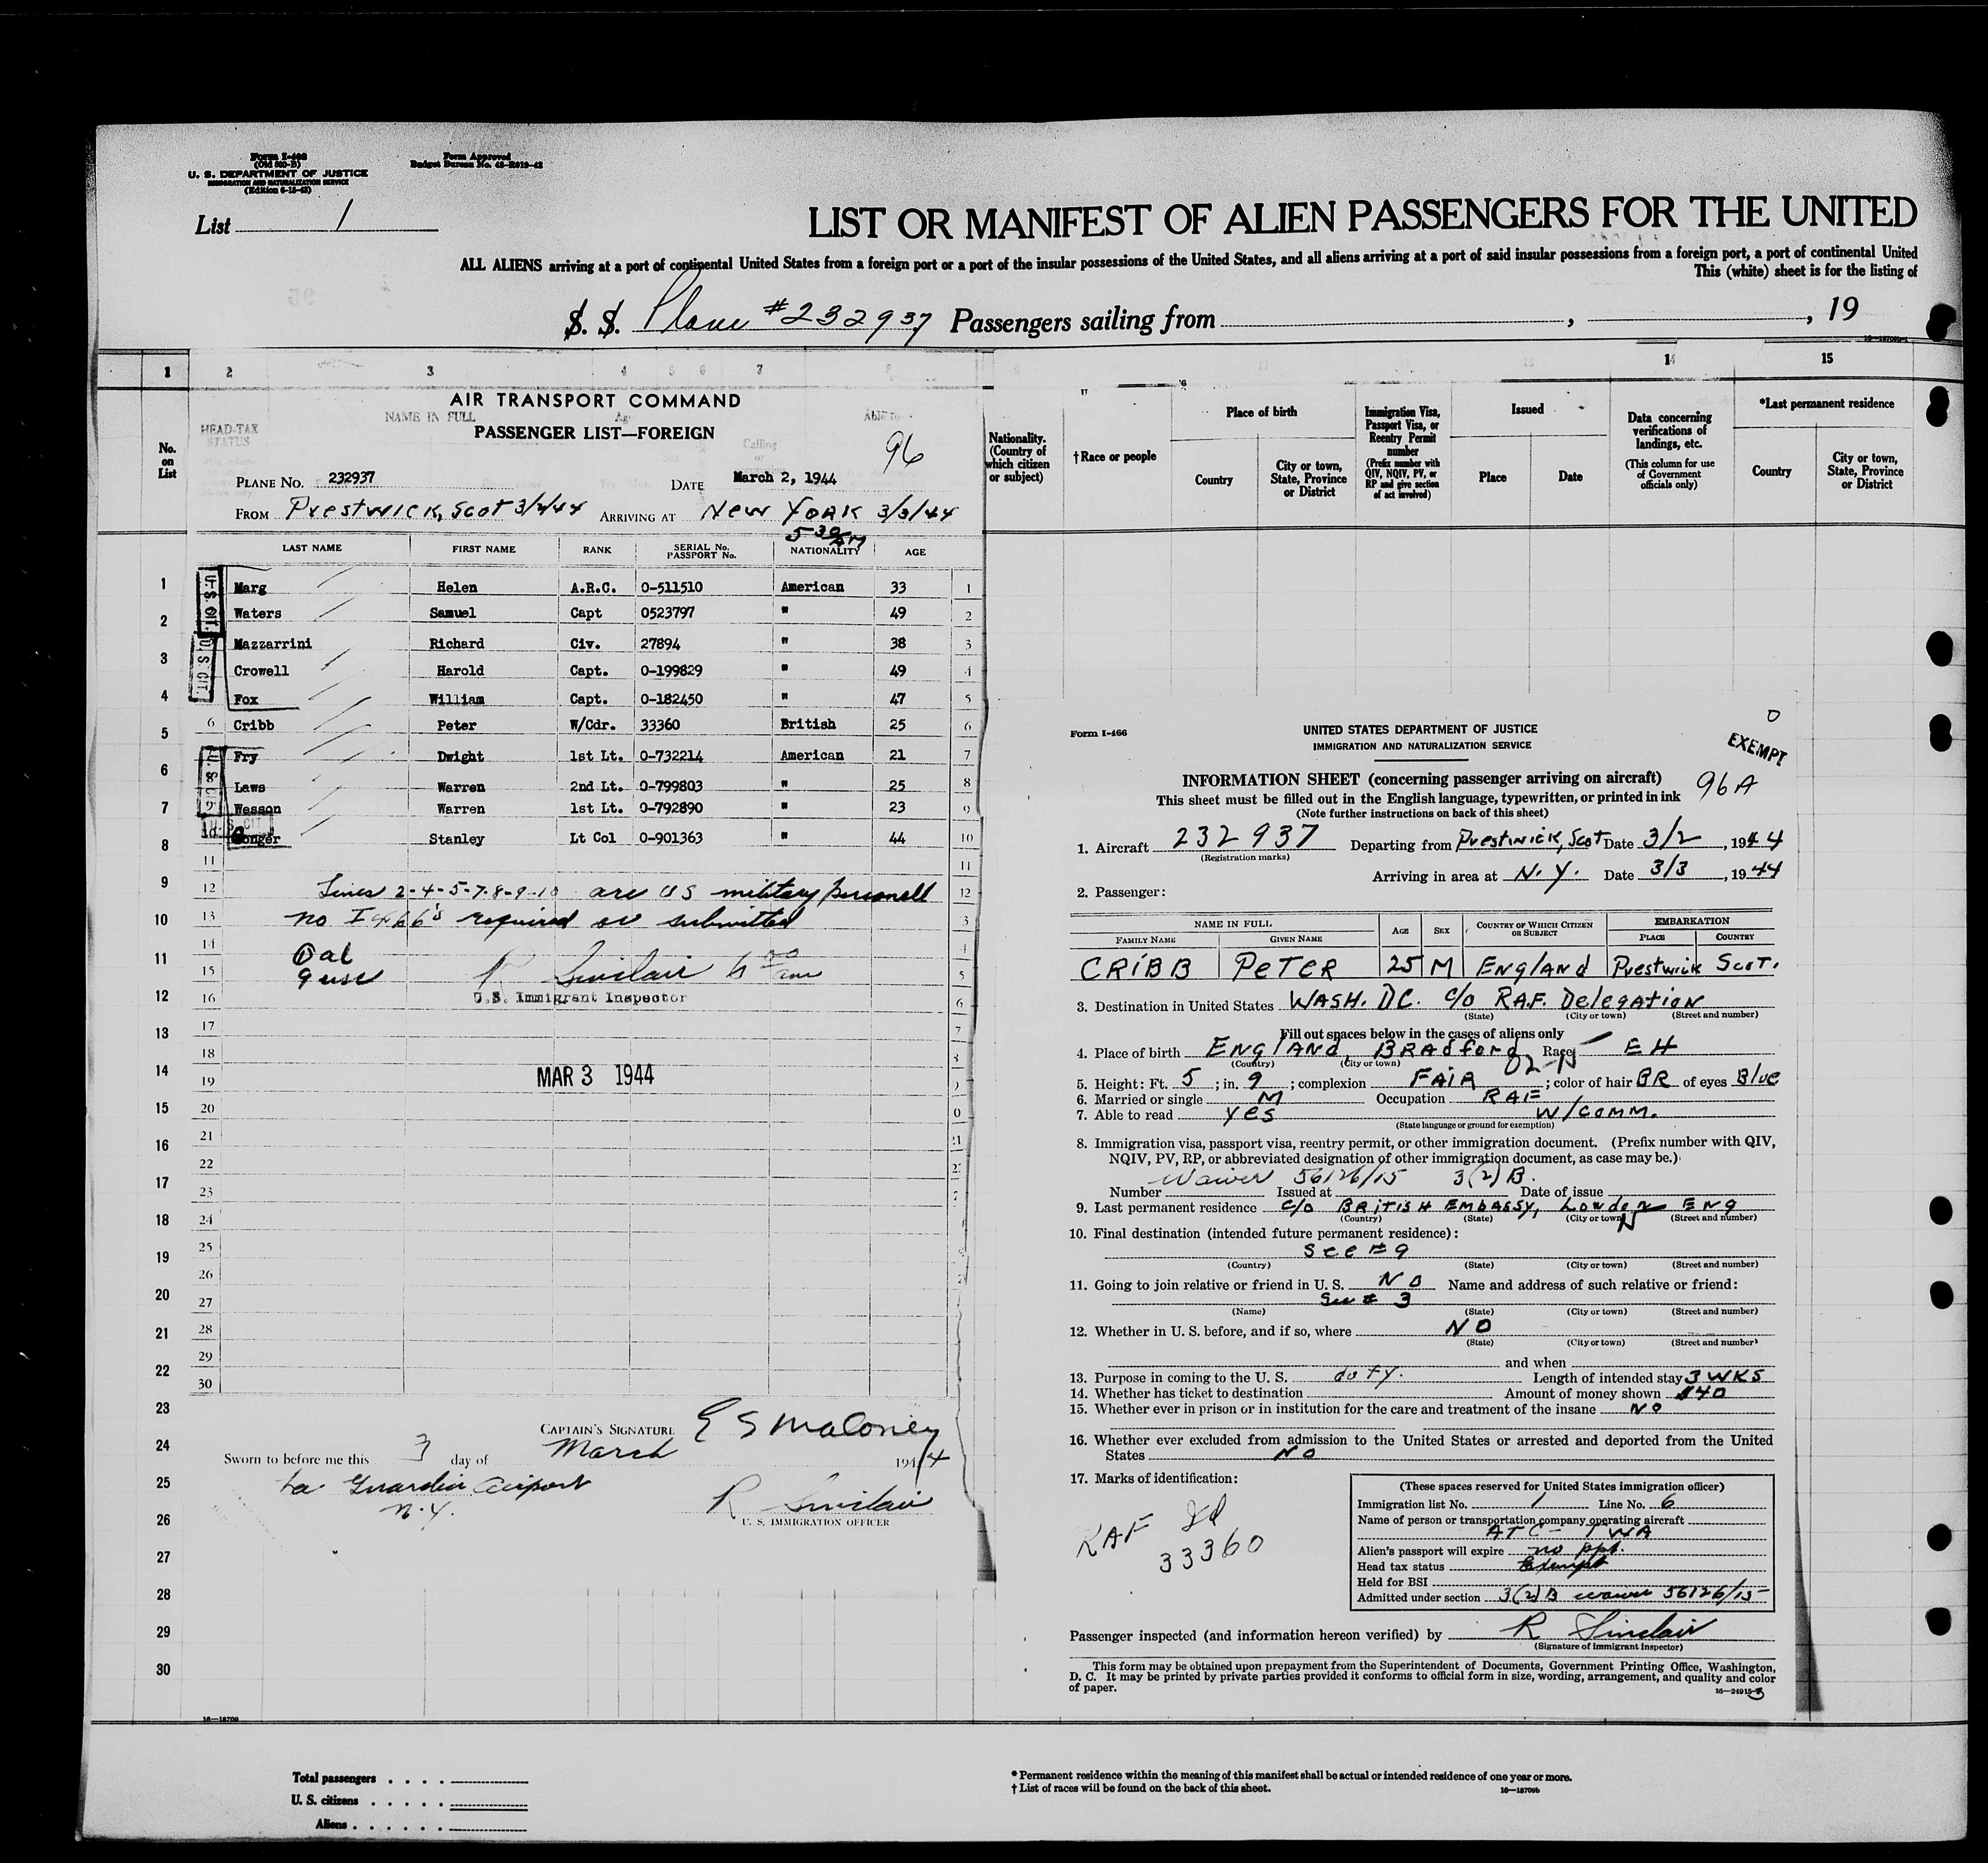 Form I-466
(Old 500-B)
U. S. DEPARTMENT OF JUSTICE
IMMIGRATION AND NATURALIZATION SERVICE
(Edition 6-15-43)
Form Approved
Budget Bureau No. 43-R019-42
List 1
LIST OR MANIFEST OF ALIEN PASSENGERS FOR THE UNITED
ALL ALIENS arriving at a port of continental United States from a foreign port or a port of the insular possessions of the United States, and all aliens arriving at a port of said insular possessions from a foreign port, a port of continental United
This (white) sheet is for the listing of
S. S. Plane #232937 Passengers sailing from , , 19
1 2 3 4 5 6 7 8 14 15
AIR TRANSPORT COMMAND
NAME IN FULL
HEAD-TAX STATUS
PASSENGER LIST—FOREIGN
96
No. on List
PLANE NO. 232937 DATE March 2, 1944
FROM Prestwick, Scot 3/2/44 ARRIVING AT New York 3/3/44
5 30 AM
LAST NAME FIRST NAME RANK SERIAL No. PASSPORT No. NATIONALITY AGE
U. S. CIT.
Marg Helen A.R.C. O-511510 American 33 1
Waters Samuel Capt O523797 " 49 2
Mazzarrini Richard Civ. 27894 " 38 3
Crowell Harold Capt. O-199829 " 49 4
Fox William Capt. O-182450 " 47 5
6 Cribb Peter W/Cdr. 33360 British 25 6
Fry Dwight 1st Lt. O-732214 American 21 7
Laws Warren 2nd Lt. O-799803 " 25 8
Wesson Warren 1st Lt. O-792890 " 23 9
Conger Stanley Lt Col O-901363 " 44 10
Lines 2-4-5-7-8-9-10 are US military personell
no I 466's required or submitted
R Sinclair
U.S. Immigrant Inspector
MAR 3 1944
CAPTAIN'S SIGNATURE E S Maloney
Sworn to before me this 3 day of March 1944
La Guardia Airport
N.Y.
R Sinclair
U. S. IMMIGRATION OFFICER
16—18709
Total passengers
U. S. citizens
Aliens
Nationality. (Country of which citizen or subject)
†Race or people
Place of birth
Country
City or town, State, Province or District
Immigration Visa, Passport Visa, or Reentry Permit number
(Prefix number with QIV, NQIV, PV, or RP and give section of act involved)
Issued
Place
Date
Data concerning verifications of landings, etc.
(This column for use of Government officials only)
*Last permanent residence
Country
City or town, State, Province or District
Form I-466
UNITED STATES DEPARTMENT OF JUSTICE
IMMIGRATION AND NATURALIZATION SERVICE
EXEMPT
INFORMATION SHEET (concerning passenger arriving on aircraft)
96A
This sheet must be filled out in the English language, typewritten, or printed in ink
(Note further instructions on back of this sheet)
1. Aircraft 232937 Departing from Prestwick, Scot Date 3/2, 1944
(Registration marks)
Arriving in area at N.Y. Date 3/3, 1944
2. Passenger:
NAME IN FULL AGE SEX COUNTRY OF WHICH CITIZEN OR SUBJECT EMBARKATION
FAMILY NAME GIVEN NAME PLACE COUNTRY
CRIBB PETER 25 M England Prestwick Scot.
3. Destination in United States WASH. DC. c/o RAF. Delegation
(State) (City or town) (Street and number)
Fill out spaces below in the cases of aliens only
4. Place of birth ENGLAND, BRADford Race EH
(Country) (City or town)
5. Height: Ft. 5; in. 9; complexion FAIR; color of hair BR of eyes Blue
6. Married or single M Occupation RAF
7. Able to read yes W/COMM.
(State language or ground for exemption)
8. Immigration visa, passport visa, reentry permit, or other immigration document. (Prefix number with QIV,
NQIV, PV, RP, or abbreviated designation of other immigration document, as case may be.)
Waiver 56126/15 3(2)B.
Number Issued at Date of issue
9. Last permanent residence c/o BRITISH EMBASSY, London ENG
(Country) (State) (City or town) (Street and number)
10. Final destination (intended future permanent residence):
See #9
(Country) (State) (City or town) (Street and number)
11. Going to join relative or friend in U. S. NO Name and address of such relative or friend:
See # 3
(Name) (State) (City or town) (Street and number)
12. Whether in U. S. before, and if so, where NO
(State) (City or town) (Street and number)
and when
13. Purpose in coming to the U. S. duty. Length of intended stay 3 WKS
14. Whether has ticket to destination Amount of money shown $40
15. Whether ever in prison or in institution for the care and treatment of the insane NO
16. Whether ever excluded from admission to the United States or arrested and deported from the United
States NO
17. Marks of identification:
RAF Id
33360
(These spaces reserved for United States immigration officer)
Immigration list No. 1 Line No. 6
Name of person or transportation company operating aircraft
ATC - TWA
Alien's passport will expire no ppt.
Head tax status Exempt
Held for BSI
Admitted under section 3(2)B waiver 56126/15
Passenger inspected (and information hereon verified) by R Sinclair
(Signature of Immigrant Inspector)
This form may be obtained upon prepayment from the Superintendent of Documents, Government Printing Office, Washington,
D. C. It may be printed by private parties provided it conforms to official form in size, wording, arrangement, and quality and color
of paper.
16—24915-3
* Permanent residence within the meaning of this manifest shall be actual or intended residence of one year or more.
† List of races will be found on the back of this sheet.
16—18709b